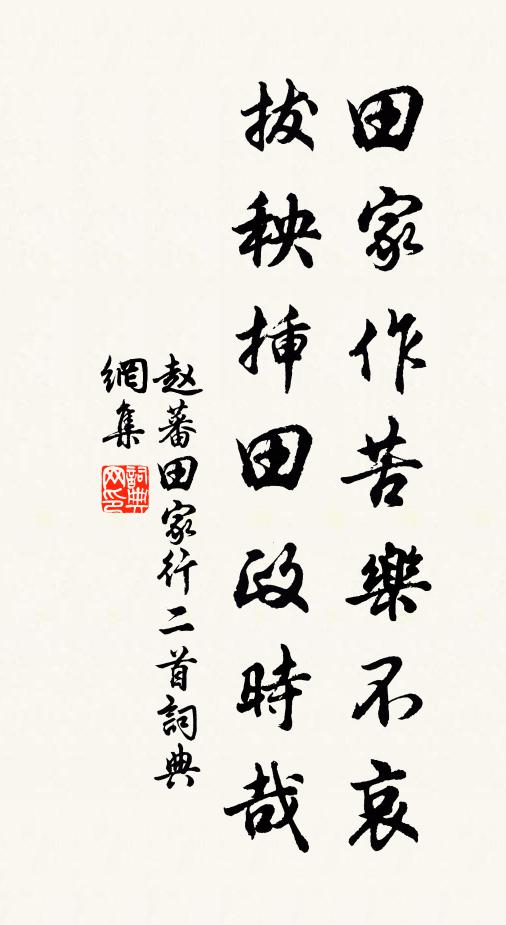 田家作苦樂不哀
拔秧揷田政時哉
赵蕃田家行二首詞典
網集
詞典
网印